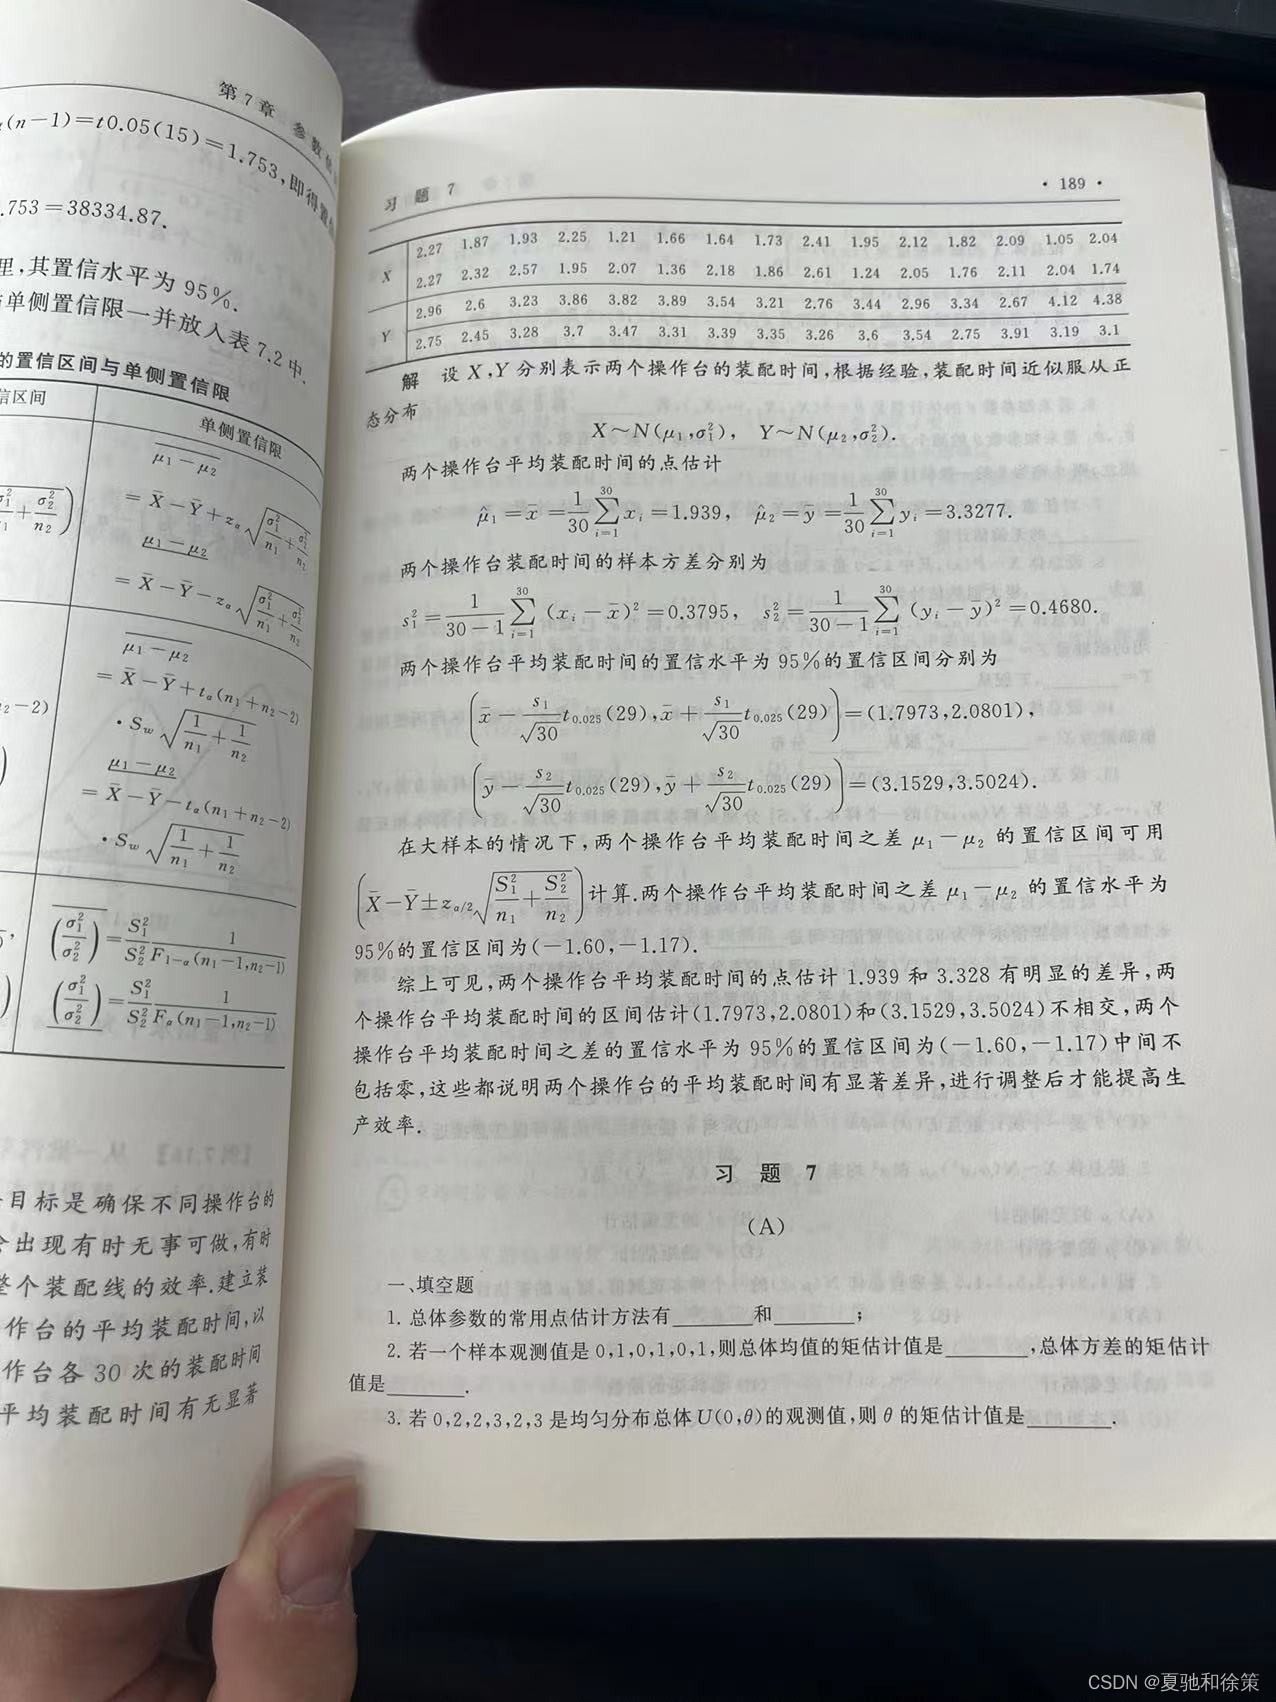 第7章 参数
(n-1)=t0.05(15)=1.753,即得置
.753=38334.87.
里,其置信水平为95%.
单侧置信限一并放入表7.2中.
的置信区间与单侧置信限
信区间
单侧置信限
μ₁-μ₂
=X̄-Ȳ+z_α√(σ₁²/n₁+σ₂²/n₂)
μ₁-μ₂
=X̄-Ȳ-z_α√(σ₁²/n₁+σ₂²/n₂)
μ₁-μ₂
=X̄-Ȳ+t_α(n₁+n₂-2)
·S_w√(1/n₁+1/n₂)
μ₁-μ₂
=X̄-Ȳ-t_α(n₁+n₂-2)
·S_w√(1/n₁+1/n₂)
(σ₁²/σ₂²)=S₁²/S₂² 1/F_{1-α}(n₁-1,n₂-1)
(σ₁²/σ₂²)=S₁²/S₂² 1/F_α(n₁-1,n₂-1)
目标是确保不同操作台的
会出现有时无事可做,有时
整个装配线的效率.建立装
作台的平均装配时间,以
作台各30次的装配时间
平均装配时间有无显著
习题7 ·189·
X 2.27 1.87 1.93 2.25 1.21 1.66 1.64 1.73 2.41 1.95 2.12 1.82 2.09 1.05 2.04
2.27 2.32 2.57 1.95 2.07 1.36 2.18 1.86 2.61 1.24 2.05 1.76 2.11 2.04 1.74
Y 2.96 2.6 3.23 3.86 3.82 3.89 3.54 3.21 2.76 3.44 2.96 3.34 2.67 4.12 4.38
2.75 2.45 3.28 3.7 3.47 3.31 3.39 3.35 3.26 3.6 3.54 2.75 3.91 3.19 3.1
解 设X,Y分别表示两个操作台的装配时间,根据经验,装配时间近似服从正
态分布
X~N(μ₁,σ₁²), Y~N(μ₂,σ₂²).
两个操作台平均装配时间的点估计
μ̂₁=x̄=1/30 ∑_{i=1}^{30} x_i=1.939, μ̂₂=ȳ=1/30 ∑_{i=1}^{30} y_i=3.3277.
两个操作台装配时间的样本方差分别为
s₁²=1/(30-1) ∑_{i=1}^{30} (x_i-x̄)²=0.3795, s₂²=1/(30-1) ∑_{i=1}^{30} (y_i-ȳ)²=0.4680.
两个操作台平均装配时间的置信水平为95%的置信区间分别为
(x̄-s₁/√30 t₀.₀₂₅(29),x̄+s₁/√30 t₀.₀₂₅(29))=(1.7973,2.0801),
(ȳ-s₂/√30 t₀.₀₂₅(29),ȳ+s₂/√30 t₀.₀₂₅(29))=(3.1529,3.5024).
在大样本的情况下,两个操作台平均装配时间之差μ₁-μ₂的置信区间可用
(X̄-Ȳ±z_{α/2}√(S₁²/n₁+S₂²/n₂))计算.两个操作台平均装配时间之差μ₁-μ₂的置信水平为
95%的置信区间为(-1.60,-1.17).
综上可见,两个操作台平均装配时间的点估计1.939和3.328有明显的差异,两
个操作台平均装配时间的区间估计(1.7973,2.0801)和(3.1529,3.5024)不相交,两个
操作台平均装配时间之差的置信水平为95%的置信区间为(-1.60,-1.17)中间不
包括零,这些都说明两个操作台的平均装配时间有显著差异,进行调整后才能提高生
产效率.
习题7
(A)
一、填空题
1. 总体参数的常用点估计方法有________和________;
2. 若一个样本观测值是0,1,0,1,0,1,则总体均值的矩估计值是________,总体方差的矩估计
值是________.
3. 若0,2,2,3,2,3是均匀分布总体U(0,θ)的观测值,则θ的矩估计值是________.
CSDN @夏驰和徐策